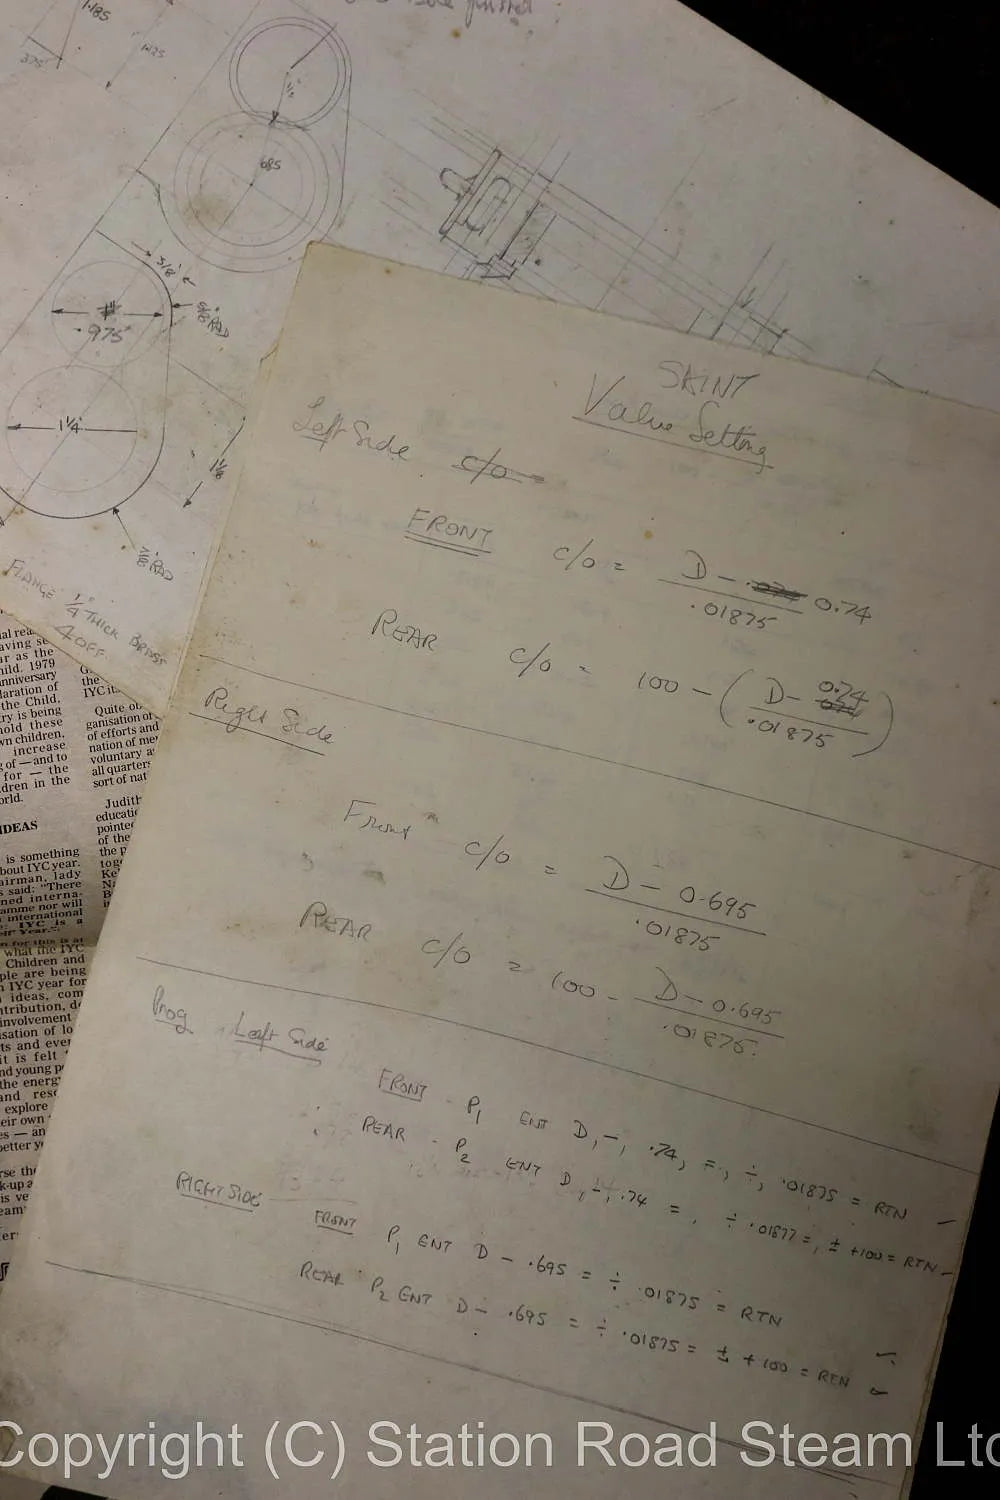 1.185
.375
1.125
.685
3/8"
.975"
5/8 RAD
1 1/4"
1 1/8
7/8" RAD
FLANGE 1/4" THICK BRASS
4 OFF.
SKINT
Valve Setting
Left Side c/o =
FRONT c/o = D - 0.74
.01875
REAR c/o = 100 - ( D - 0.74
.01875 )
Right Side
Front c/o = D - 0.695
.01875
REAR c/o = 100 - D - 0.695
.01875.
Prog Leaft Side
FRONT - P1 ENT D, -, .74, =, ÷, .01875 = RTN
REAR - P2 ENT D, -, .74 =, ÷ .01877 =, ± +100 = RTN
RIGHT SIDE
FRONT P1 ENT D - .695 = ÷ .01875 = RTN
REAR P2 ENT D - .695 = ÷ .01875 = ± + 100 = RTN
aving se
ar as the
hild. 1979
anniversary
laration of
the Child,
ry is being
hold these
wn children,
increase
g of — and to
for — the
ldren in the
orld.
IDEAS
is something
bout IYC year.
airman, lady
s said: "There
ned interna-
amme nor will
international
: IYC is a
what the IYC
Children and
ple are being
n IYC year for
ideas, com
ntribution, d
involvement
sation of lo
ts and ever
it is felt
nd young p
the energ
and res
explore
eir own
es — an
better y
the
IYC it
Quite o
ganisation of
of efforts and
nation of me
voluntary a
all quarters
sort of nat
Judith
educati
pointe
of the
the p
toge
Copyright (C) Station Road Steam Ltd